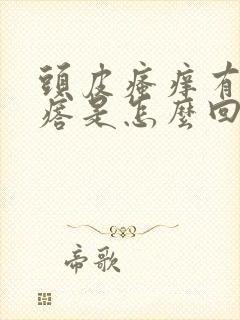 頭皮瘙痒有
痞是怎麼回
帝歌